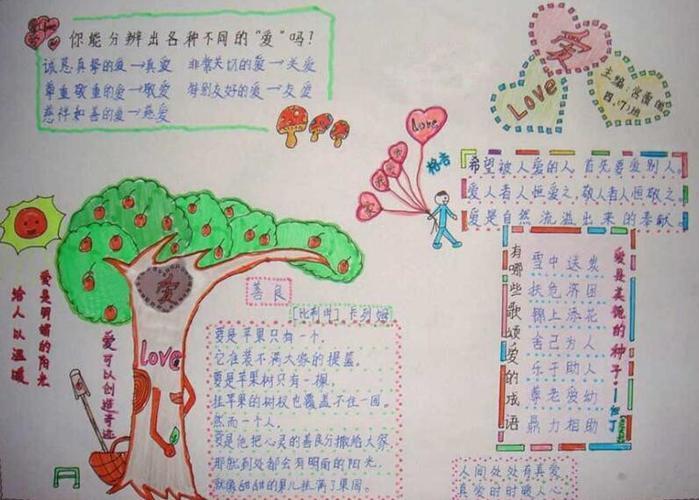 你能分辨出各种不同的“爱”吗?
诚恳真挚的爱→真爱 非常关切的爱→关爱
尊重敬重的爱→敬爱 特别友好的爱→友爱
慈祥和善的爱→慈爱
爱
Love
主编:宫蕾
四.(7)班
Love
格言
希望被人爱的人,首先要爱别人。
爱人者人恒爱之,敬人者人恒敬之。
爱是自然流溢出来的奉献。
爱是明媚的阳光
给人以温暖
爱可以创造奇迹
爱
love
善良
[比利时]卡列姆
要是苹果只有一个,
它准装不满大家的提篮。
要是苹果树只有一棵,
挂苹果的树杈也覆盖不住一园。
然而一个人,
要是他把心灵的善良分撒给大家,
那就到处都会有明丽的阳光,
就像甜甜的果儿挂满了果园。
有哪些歌颂爱的成语
雪中送炭
扶危济困
锦上添花
舍己为人
乐于助人
尊老爱幼
鼎力相助
爱是美德的种子。——但丁
人间处处有真爱
真爱时时暖人心